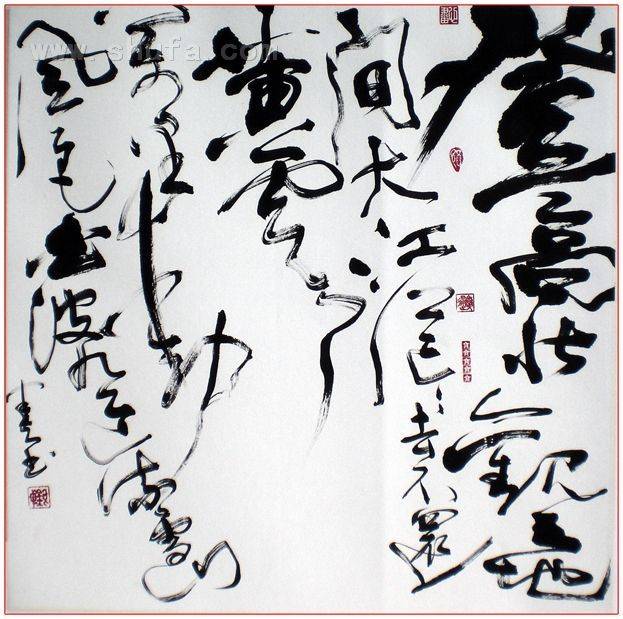 登高壮观天地
间大江茫茫去不还
黄云
万里动
风色白波九道流雪山
书